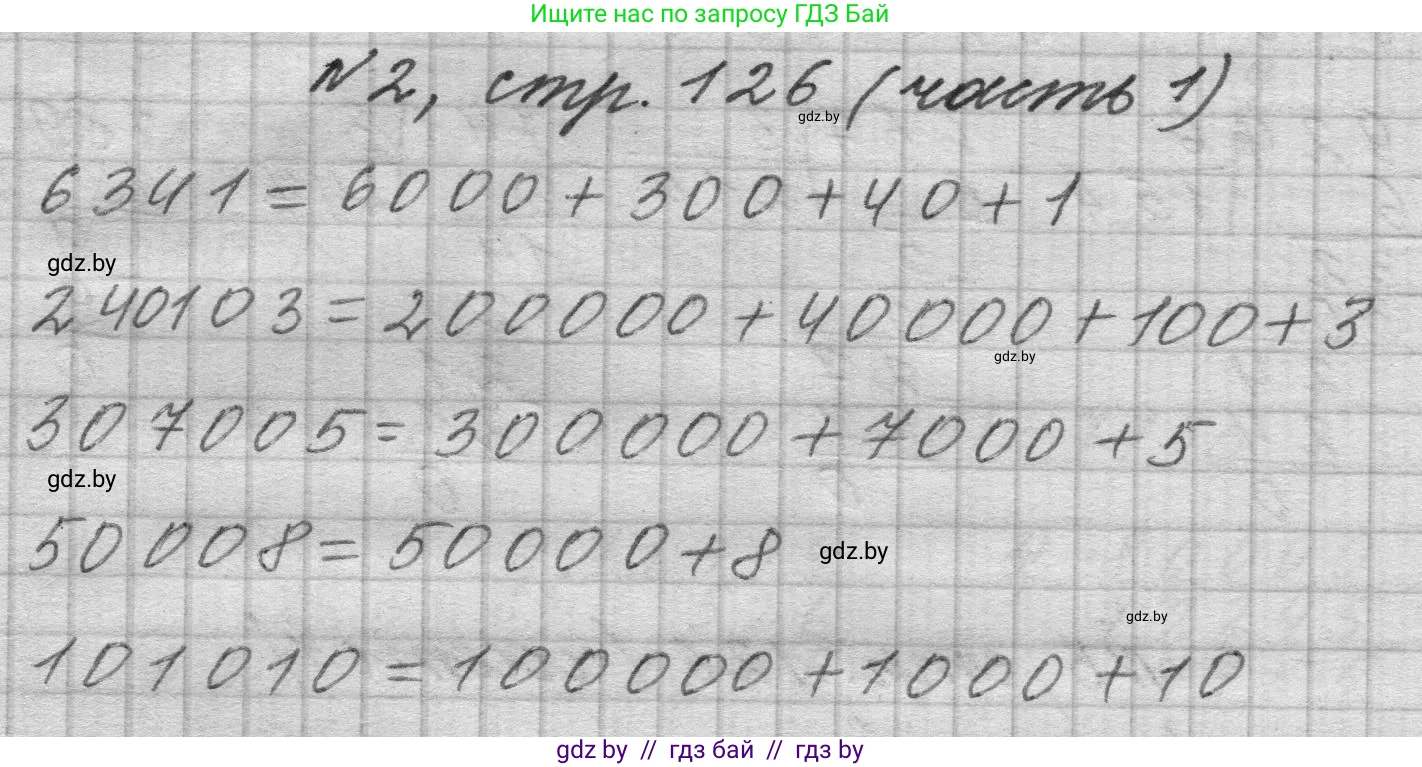 Ищите нас по запросу ГДЗ Бай
№2, стр. 126 (часть 1)
gdz.by
6341 = 6000 + 300 + 40 + 1
gdz.by
240103 = 200000 + 40000 + 100 + 3
gdz.by
307005 = 300000 + 7000 + 5
gdz.by
50008 = 50000 + 8
gdz.by
gdz.by
101010 = 100000 + 1000 + 10
gdz by // гдз бай // гдз by